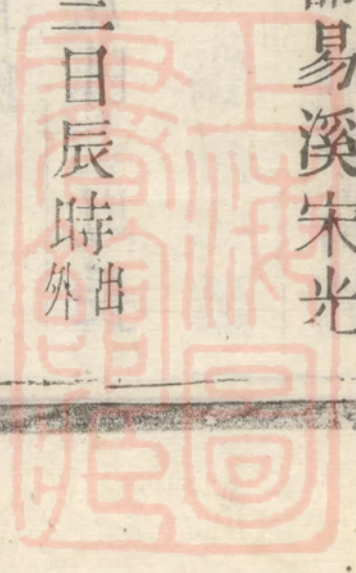 易溪宋光
日辰時出外
上海圖
書館藏